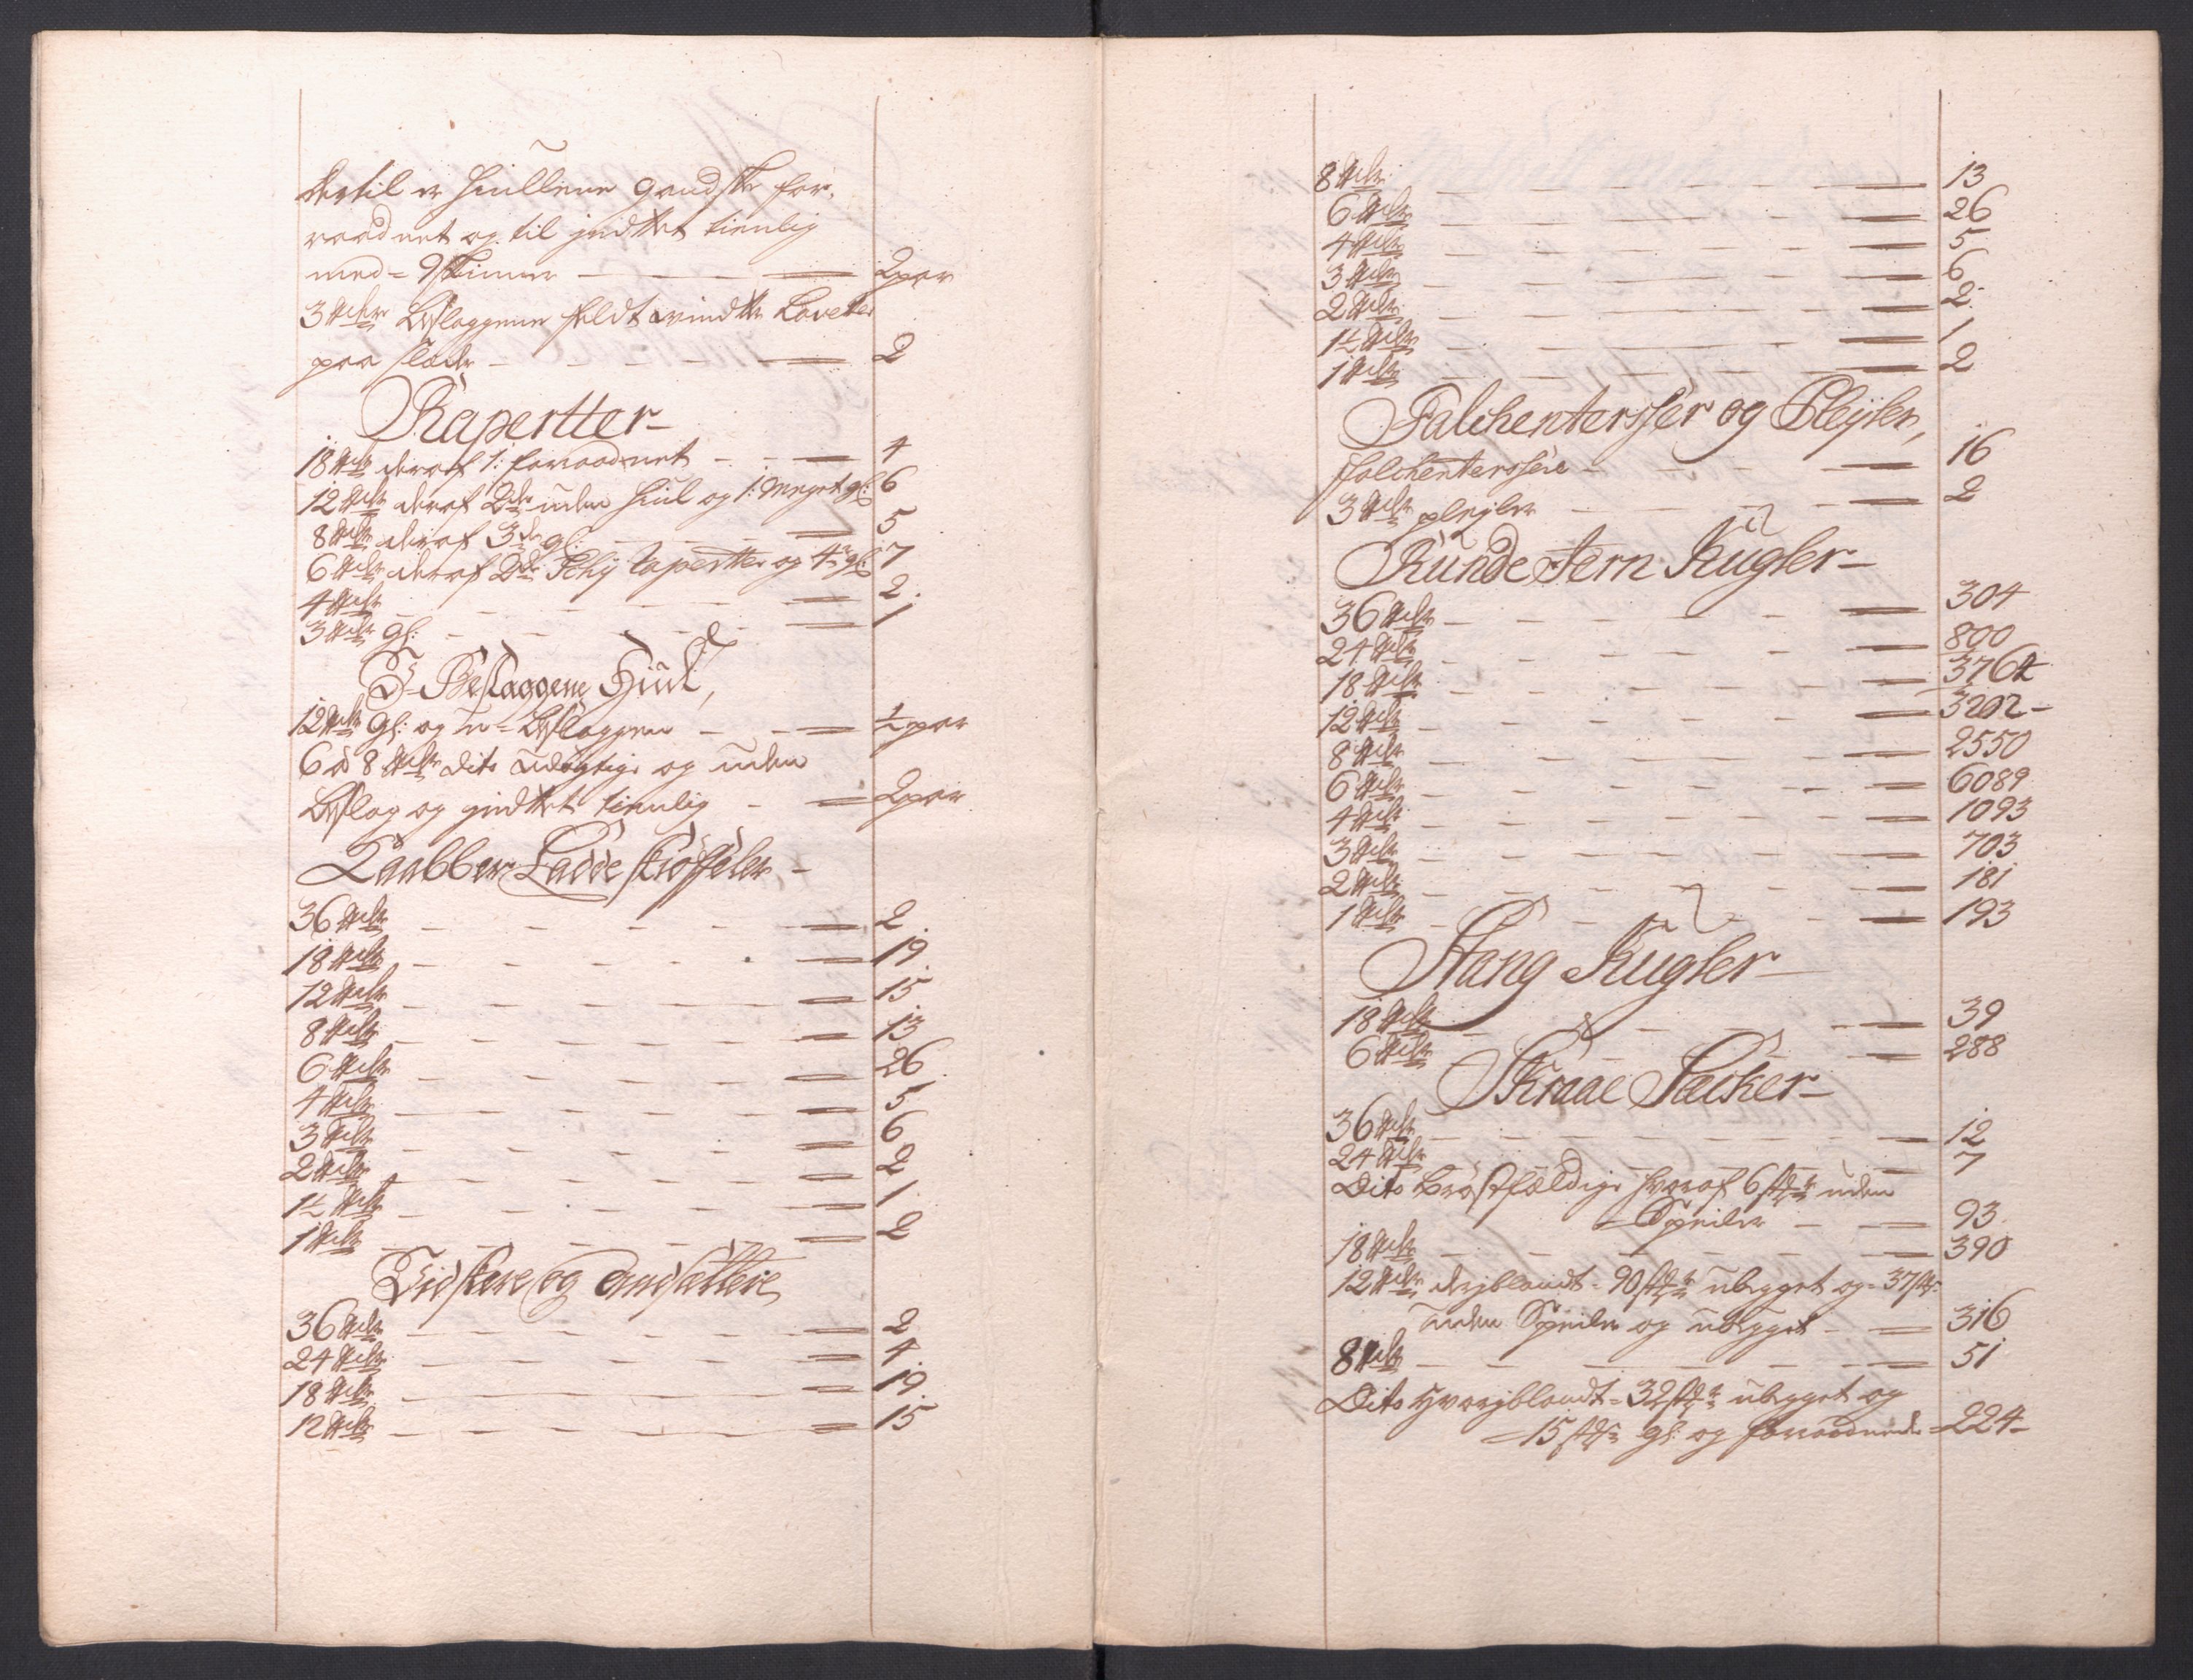 dertil er Hiullene gandske for,
raadnet og til jndtet tienlig
med = 9 skinner — 2 par
3 ℔der Beslaggene feldt Lavetter
paa slæde — 2
Rapertter
18 ℔der deraf 1: forraadnet — 4
12 ℔der deraf 2de uden Hiul og 1: meget gl: 6
8 ℔der deraf 3de gl: — 5
6 ℔der deraf 2de Rapertter og 4re gl: 7
4 ℔der — 2.
3 ℔der gl: — 1
Beslaggene Hiul,
12 ℔der gl: og u-Beslaggene — ½ par
6 à 8 ℔der dito udögtige og uden
Beslag og jndtet tienlig — 2 par
Kaabber Ladde skoffeler -
36 ℔der — 2.
18 ℔der — 19.
12 ℔der — 15.
8 ℔der — 13
6 ℔der — 26.
4 ℔der — 5
3 ℔der — 6
2 ℔der — 2
1½ ℔der — 1.
1 ℔der — 2
Vidskere og Andsættere
36 ℔der — 2
24 ℔der — 4.
18 ℔der — 19.
12 ℔der — 15
8 ℔der — 13
6 ℔der — 26
4 ℔der — 5
3 ℔der — 6
2 ℔der — 2.
1½ ℔der — 1
1 ℔der — 2
Falchentersser og Pleÿler,
falchentersseie — 16
3 ℔der pleyler — 2
Runde Jern Kugler -
36 ℔der — 304
24 ℔der — 800
18 ℔der — 3764
12 ℔der — 3202 -
8 ℔der — 2550
6 ℔der — 6089
4 ℔der — 1093
3 ℔der — 703
2 ℔der — 181
1 ℔der — 193
Stang Kugler -
18 ℔der — 39
6 ℔der — 288
Skraae Sæcker -
36 ℔der — 12
24 ℔der — 7
Dito Bröstfældige hvoraf 6 stkr uden
Speiler — 93.
18 ℔der — 390
12 ℔der deriblandt = 90 stkr ubegget og = 37 stkr:
uden Speiler og ubegget — 316
8 ℔der — 51
Dito hvoriblandt = 32 stkr ubegget og
= 15 stkr gl: og forraadnede = 224 -